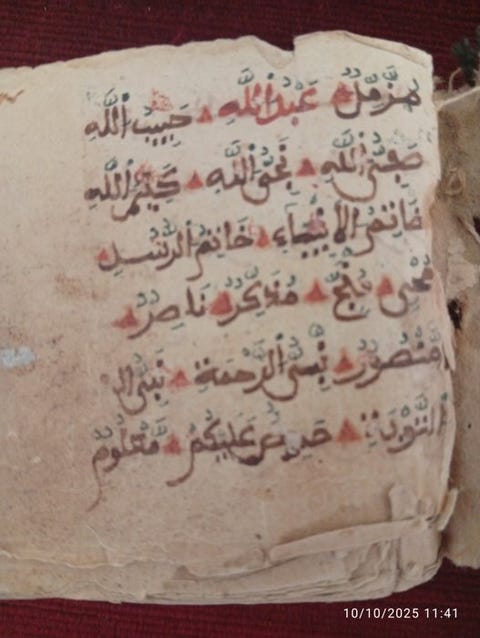 مُزَّمِّلٌ عَبْدُ اللَّهِ حَبِيبُ اللَّهِ
صَفِيُّ اللَّهِ نَجِيُّ اللَّهِ كَلِيمُ اللَّهِ
خَاتِمُ الأَنْبِيَاءِ خَاتِمُ الرُّسُلِ
مُحْيِي مُنْجٍ مُذَكِّرٌ نَاصِرٌ
مَنْصُورٌ نَبِيُّ الرَّحْمَةِ نَبِيُّ ال
التَّوْبَةِ حَرِيصٌ عَلَيْكُمْ مَعْلُومٌ
10/10/2025 11:41